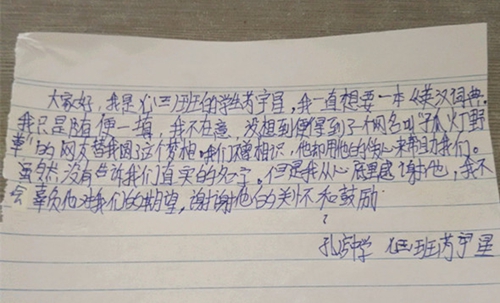 大家好,我是(三)班的学生芮宇星,我一直想要一本《英汉词典,
我只是随便一填,我不在意,没想到便得到了个网名叫孤灯野
的网友替我圆这个梦想。我们不曾相识,他却用他的爱心来帮助我们。
虽然没有告诉我们真实的名字,但是我从心底里感谢他,我不
会辜负他对我们的期望,谢谢他的关怀和鼓励
孔店中学 班芮宇星